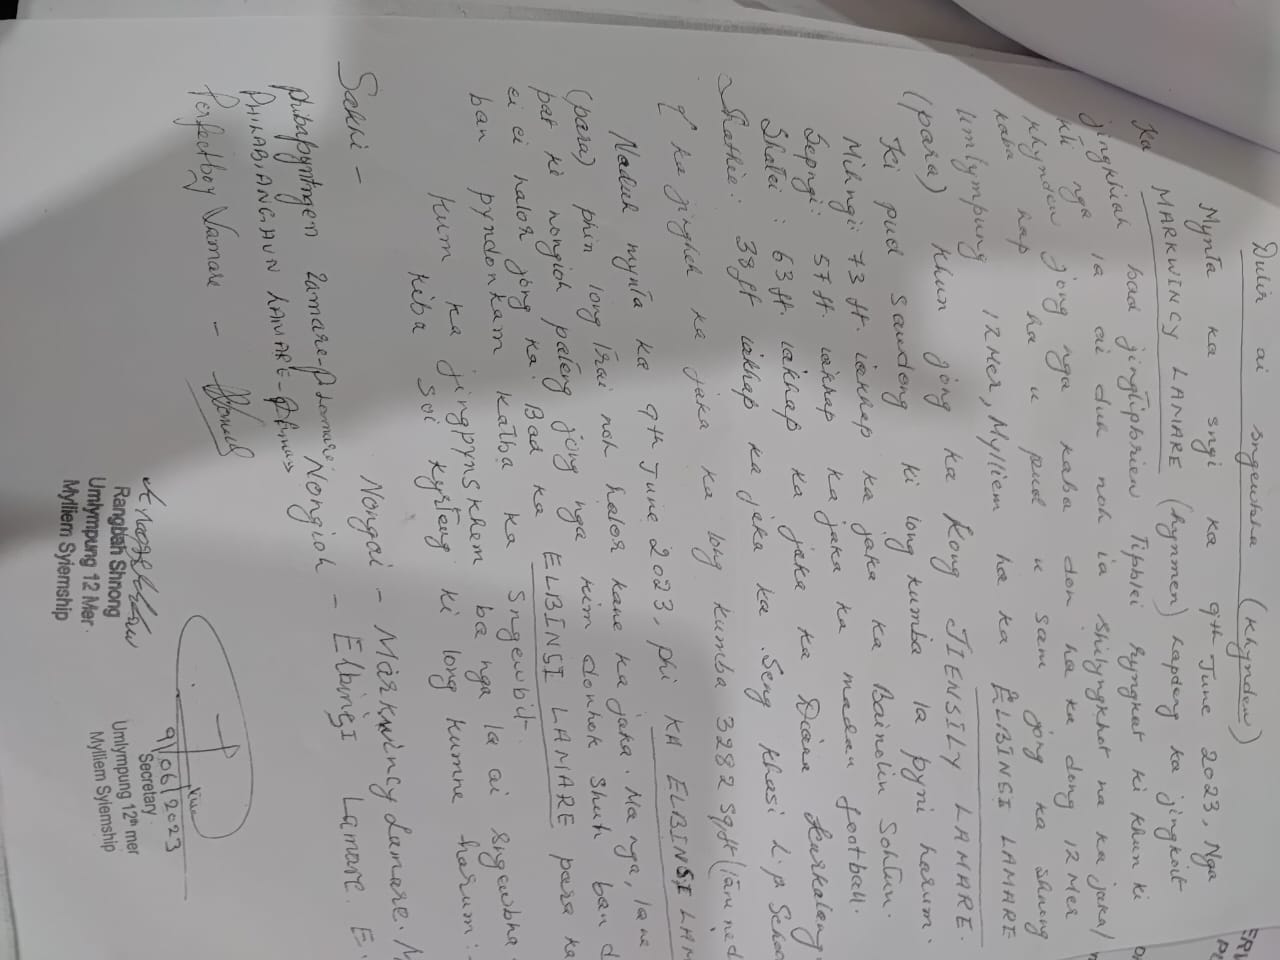 Dulir ai sngewbha (Khyndew)
Mynta ka sngi ka 9th June 2023, Nga
Ka MARKWINCY LAMARE (kynmen) hapdeng ka jingkoit
jingkhiah bad jingtiplem tiplei ryngkat ki khun ki
nga la ai duh noh ia shilyngkhot na ka jaka/
khyndew jong nga kaba don ha ka dong 12 Mer
kaba hap ha u pud u sam jong ka shnong
Umlympung 12 Mer, Mylliem ha ka ELBINSI LAMARE
(para) khun jong ka Kong TIENSILY LAMARE.
Ki pud sawdong ki long kumba la pyni harum.
Mihngi 73 ft. iakhap ka jaka ka Bainolin Sohtun.
Sepngi: 57 ft. iakhap ka jaka ka madan football.
Shatei : 63 ft. iakhap ka jaka ka Diana Kurkalang
Shathie: 38 ft iakhap ka jaka ka Seng Khasi L.P School
ka jingheh ka jaka ka long kumba 3282 sqft
Naduh mynta ka 9th June 2023, phi KA ELBINSI LAM
(para) phin long trai noh halor kane ka jaka. Ma nga, lane
pat ki nongioh pateng jong nga kim donhok shuh ban
ei ei halor jong ka. Bad ka ELBINSI LAMARE para ka
ban pyndonkam katba ka sngewbit.
Kum ka jingpynskhem ba nga la ai sngewbha
kiba soi kyrteng ki long kumne harum:-
Sakhi - Nongai - Markwincy Lamare. M
Phibapyntngen Lamare - PLamare Nongioh - Elbinsi Lamare. E.
PHILABIANGHUN LAMARE -
Perfectboy Lamare -
Rangbah Shnong
Umlympung 12 Mer.
Mylliem Syiemship
9/06/2023
Secretary
Umlympung 12th mer
Mylliem Syiemship